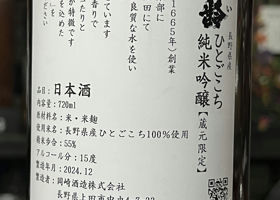 長野県産
ひとごこち
純米吟醸
【蔵元限定】
1665年)創業
部に
田にて
良質な水を使い
ています
香りで
が特徴です
を込めた
」を
ください
品目:日本酒
内容量:720ml
原材料:米・米麹
使用米:長野県産ひとごこち100%使用
精米歩合:55%
アルコール分:15度
製造年月:2024.12
製造者:岡崎酒造株式会社
長野県上田市中央4-7-33